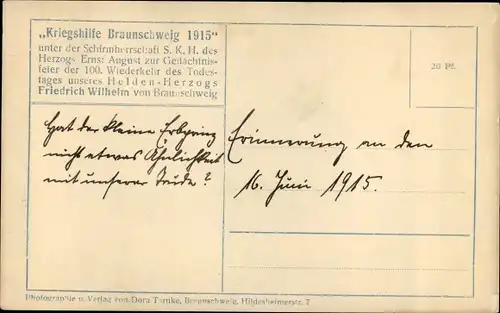 „Kriegshilfe Braunschweig 1915“
unter der Schirmherrschaft S. K. H. des
Herzogs Ernst August zur Gedächtnis-
feier der 100. Wiederkehr des Todes-
tages unseres Helden-Herzogs
Friedrich Wilhelm von Braunschweig
20 Pf.
Hat der kleine Erbprinz
nicht etwas Ähnlichkeit
mit unserer ?
Erinnerung an den
16. Juni 1915.
Photographie u. Verlag von Dora Tarnke, Braunschweig, Hildesheimerstr. 7